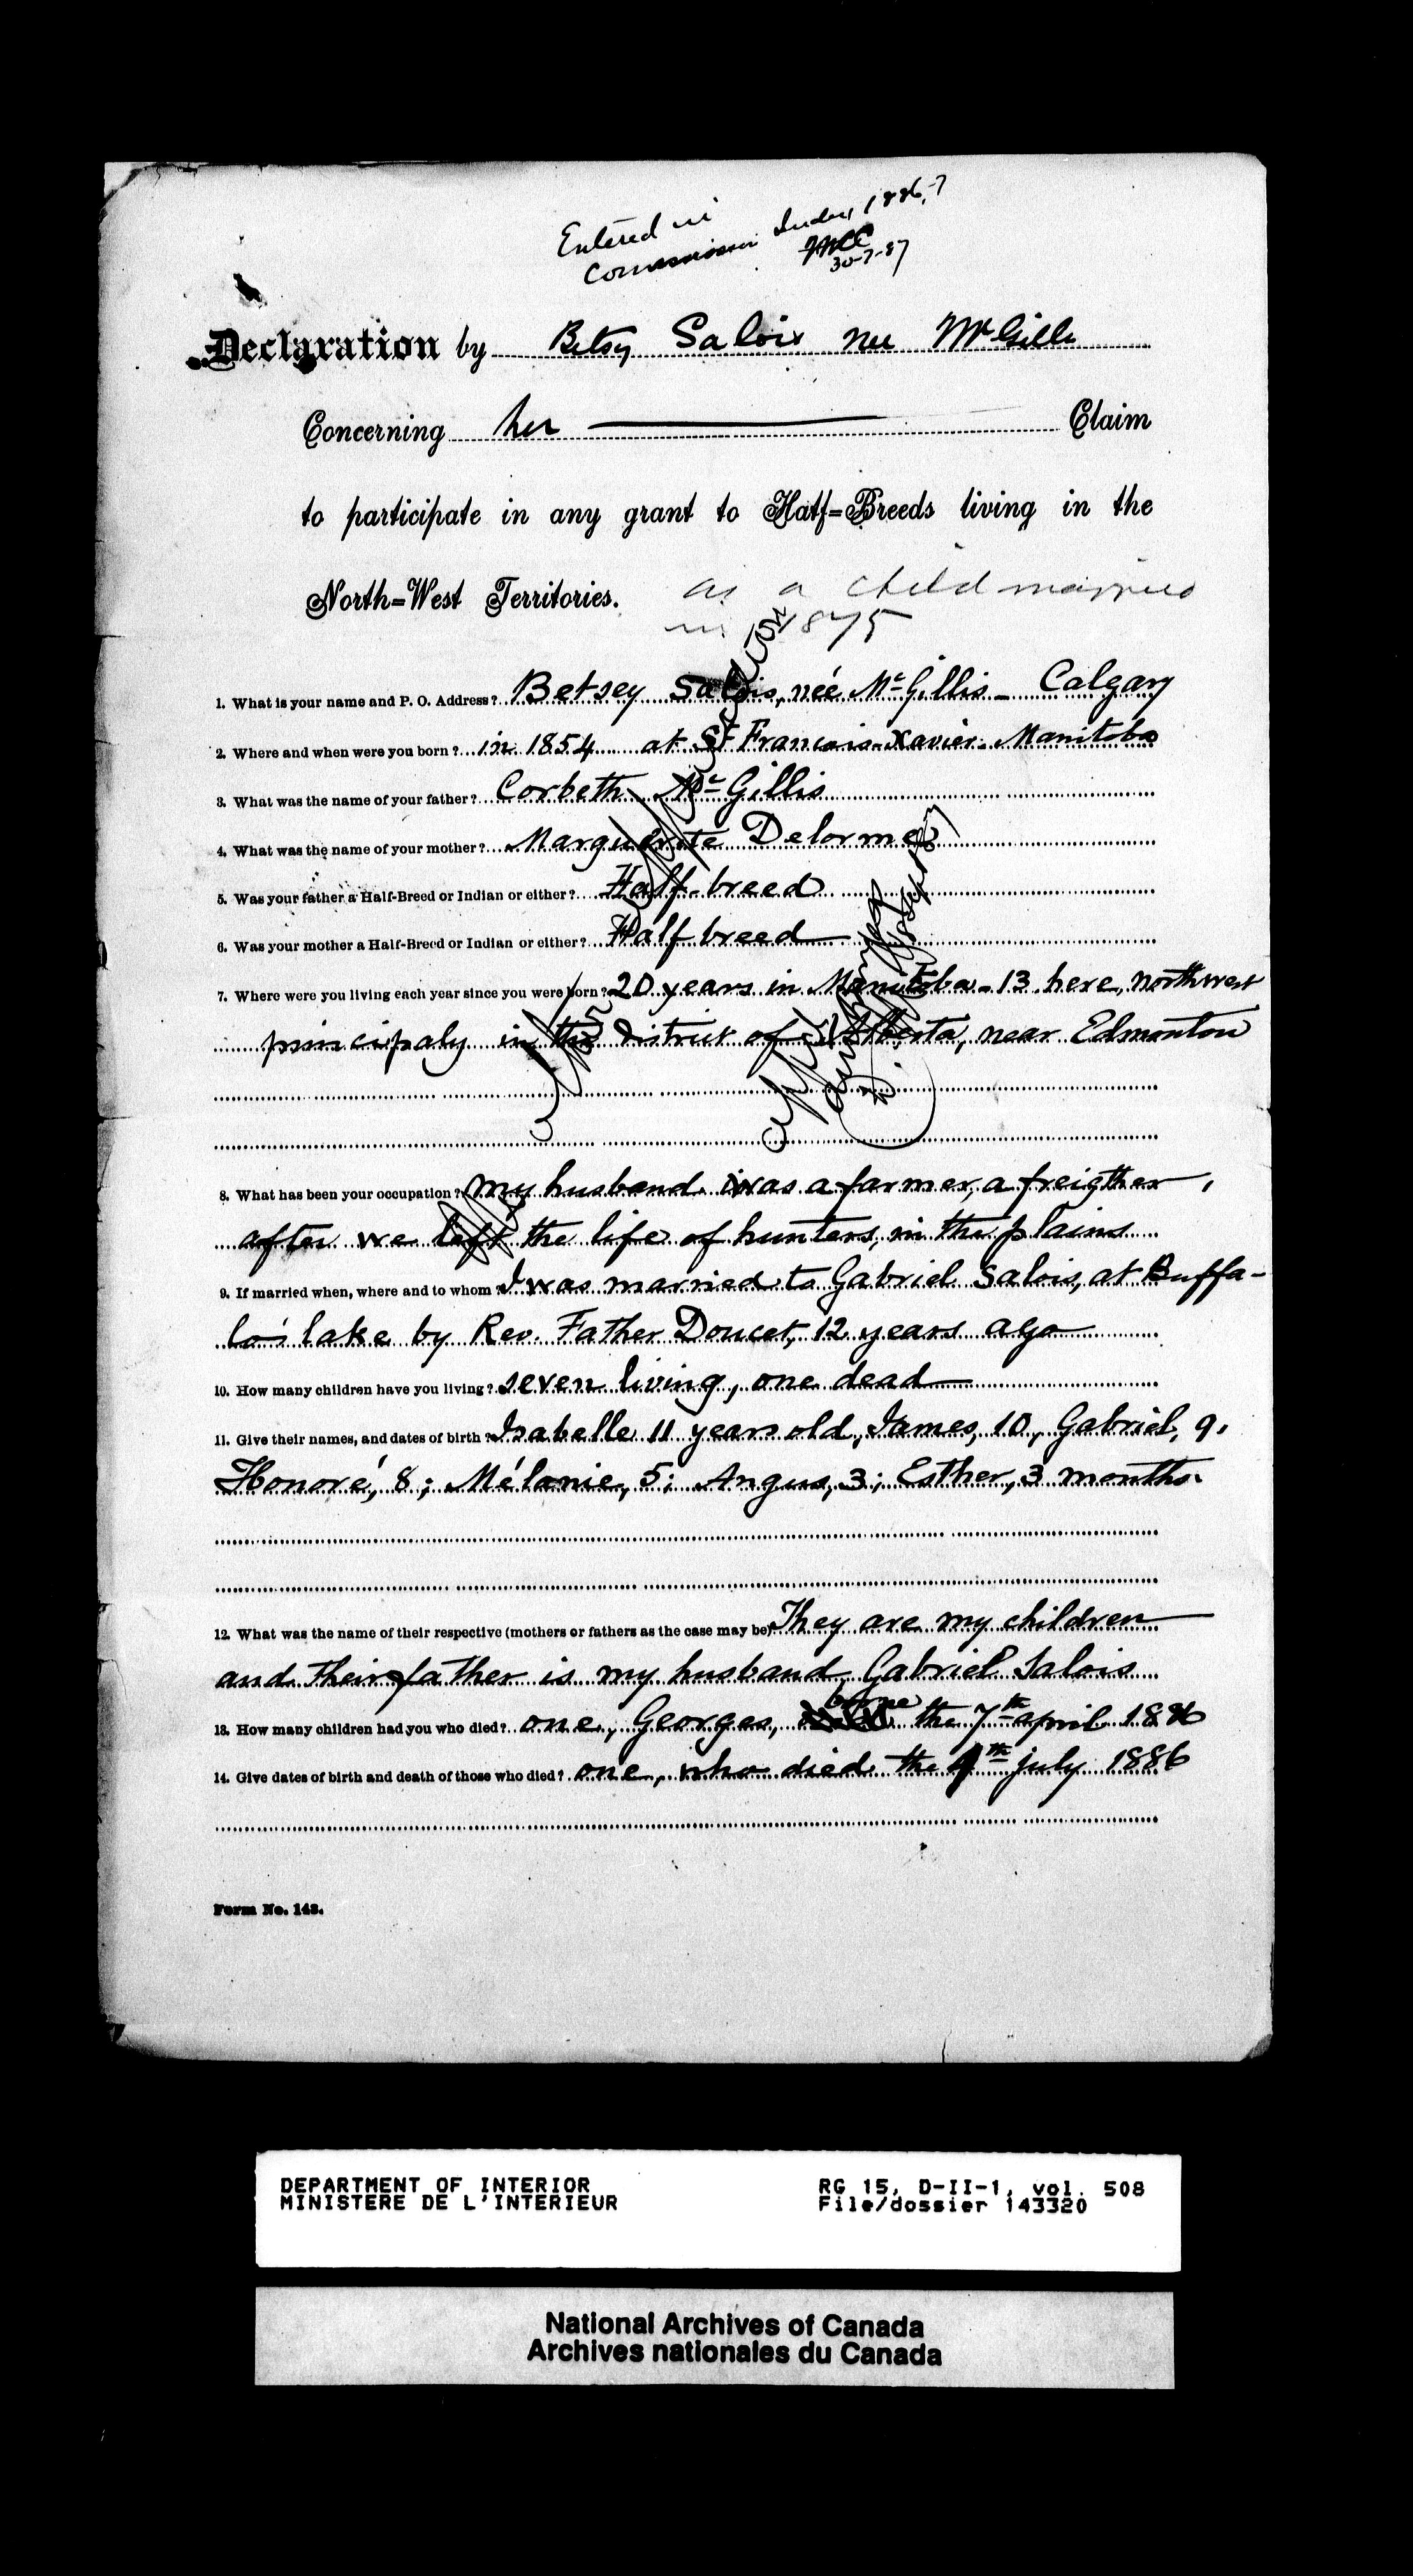 Entered in
Commission Index, 1886-7
30-7-87
Declaration by Betsy Salois nee McGillis
Concerning her Claim
to participate in any grant to Half=Breeds living in the
North=West Territories. as a child married
in 1875
1. What is your name and P. O. Address? Betsey Salois, née Mc Gillis - Calgary
2. Where and when were you born? in 1854 at St Francois-Xavier. Manitoba
3. What was the name of your father? Corbeth Mc Gillis
4. What was the name of your mother? Marguerite Delorme
5. Was your father a Half-Breed or Indian or either? Half-breed
6. Was your mother a Half-Breed or Indian or either? Half breed
7. Where were you living each year since you were born? 20 years in Manitoba - 13 here, northwest
principaly in the district of Alberta, near Edmonton
8. What has been your occupation? my husband was a farmer, a freigther,
after we left the life of hunters, in the plains
9. If married when, where and to whom? I was married to Gabriel Salois, at Buffa-
lo's lake by Rev. Father Doucet, 12 years ago
10. How many children have you living? seven living, one dead
11. Give their names, and dates of birth? Isabelle 11 years old, James, 10, Gabriel, 9,
Honoré, 8; Mélanie, 5; Angus, 3; Esther, 3 months.
12. What was the name of their respective (mothers or fathers as the case may be) They are my children
and their father is my husband, Gabriel Salois
13. How many children had you who died? one, Georges, borne the 7th april 1886
14. Give dates of birth and death of those who died? one, who died the th july 1886
Form No. 143.
DEPARTMENT OF INTERIOR
MINISTERE DE L'INTERIEUR
RG 15, D-II-1, vol. 508
File/dossier 143320
National Archives of Canada
Archives nationales du Canada